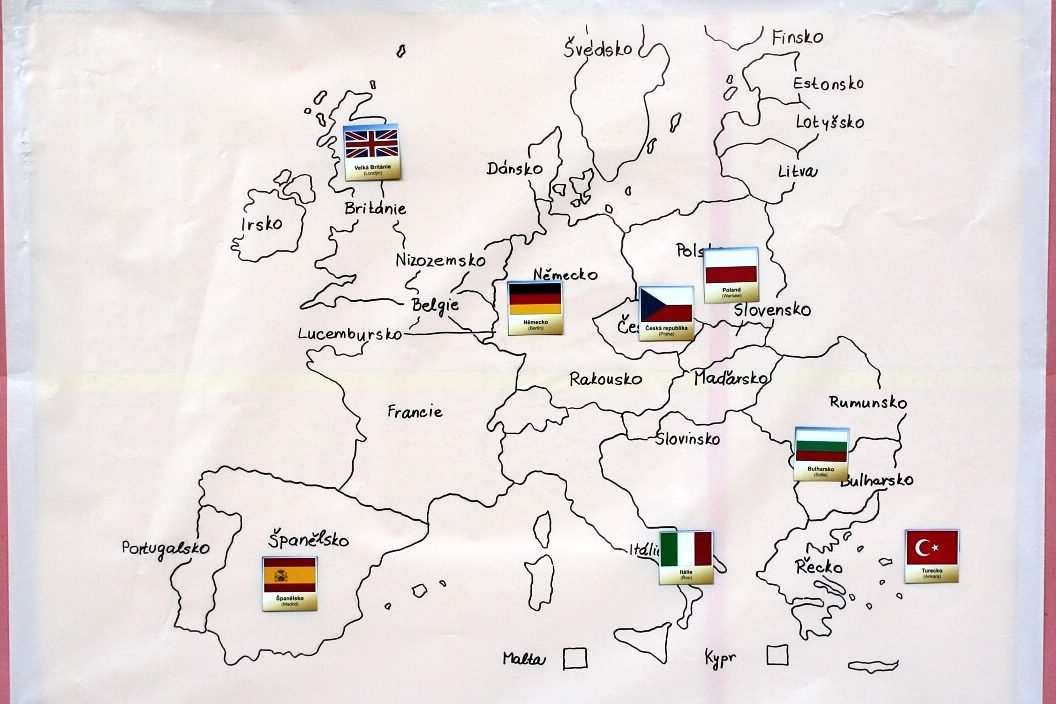 Švédsko
Finsko
Estonsko
Lotyšsko
Litva
Dánsko
Velká Británie
(Londýn)
Británie
Irsko
Nizozemsko
Německo
Německo
(Berlín)
Belgie
Lucembursko
Polsk
Poland
(Warsaw)
Čes
Česká republika
(Praha)
Slovensko
Rakousko
Maďarsko
Francie
Rumunsko
Slovinsko
Bulharsko
(Sofie)
Bulharsko
Portugalsko
Španělsko
Španělsko
(Madrid)
Itálie
Itálie
(Řím)
Řecko
Turecko
(Ankara)
Malta
Kypr